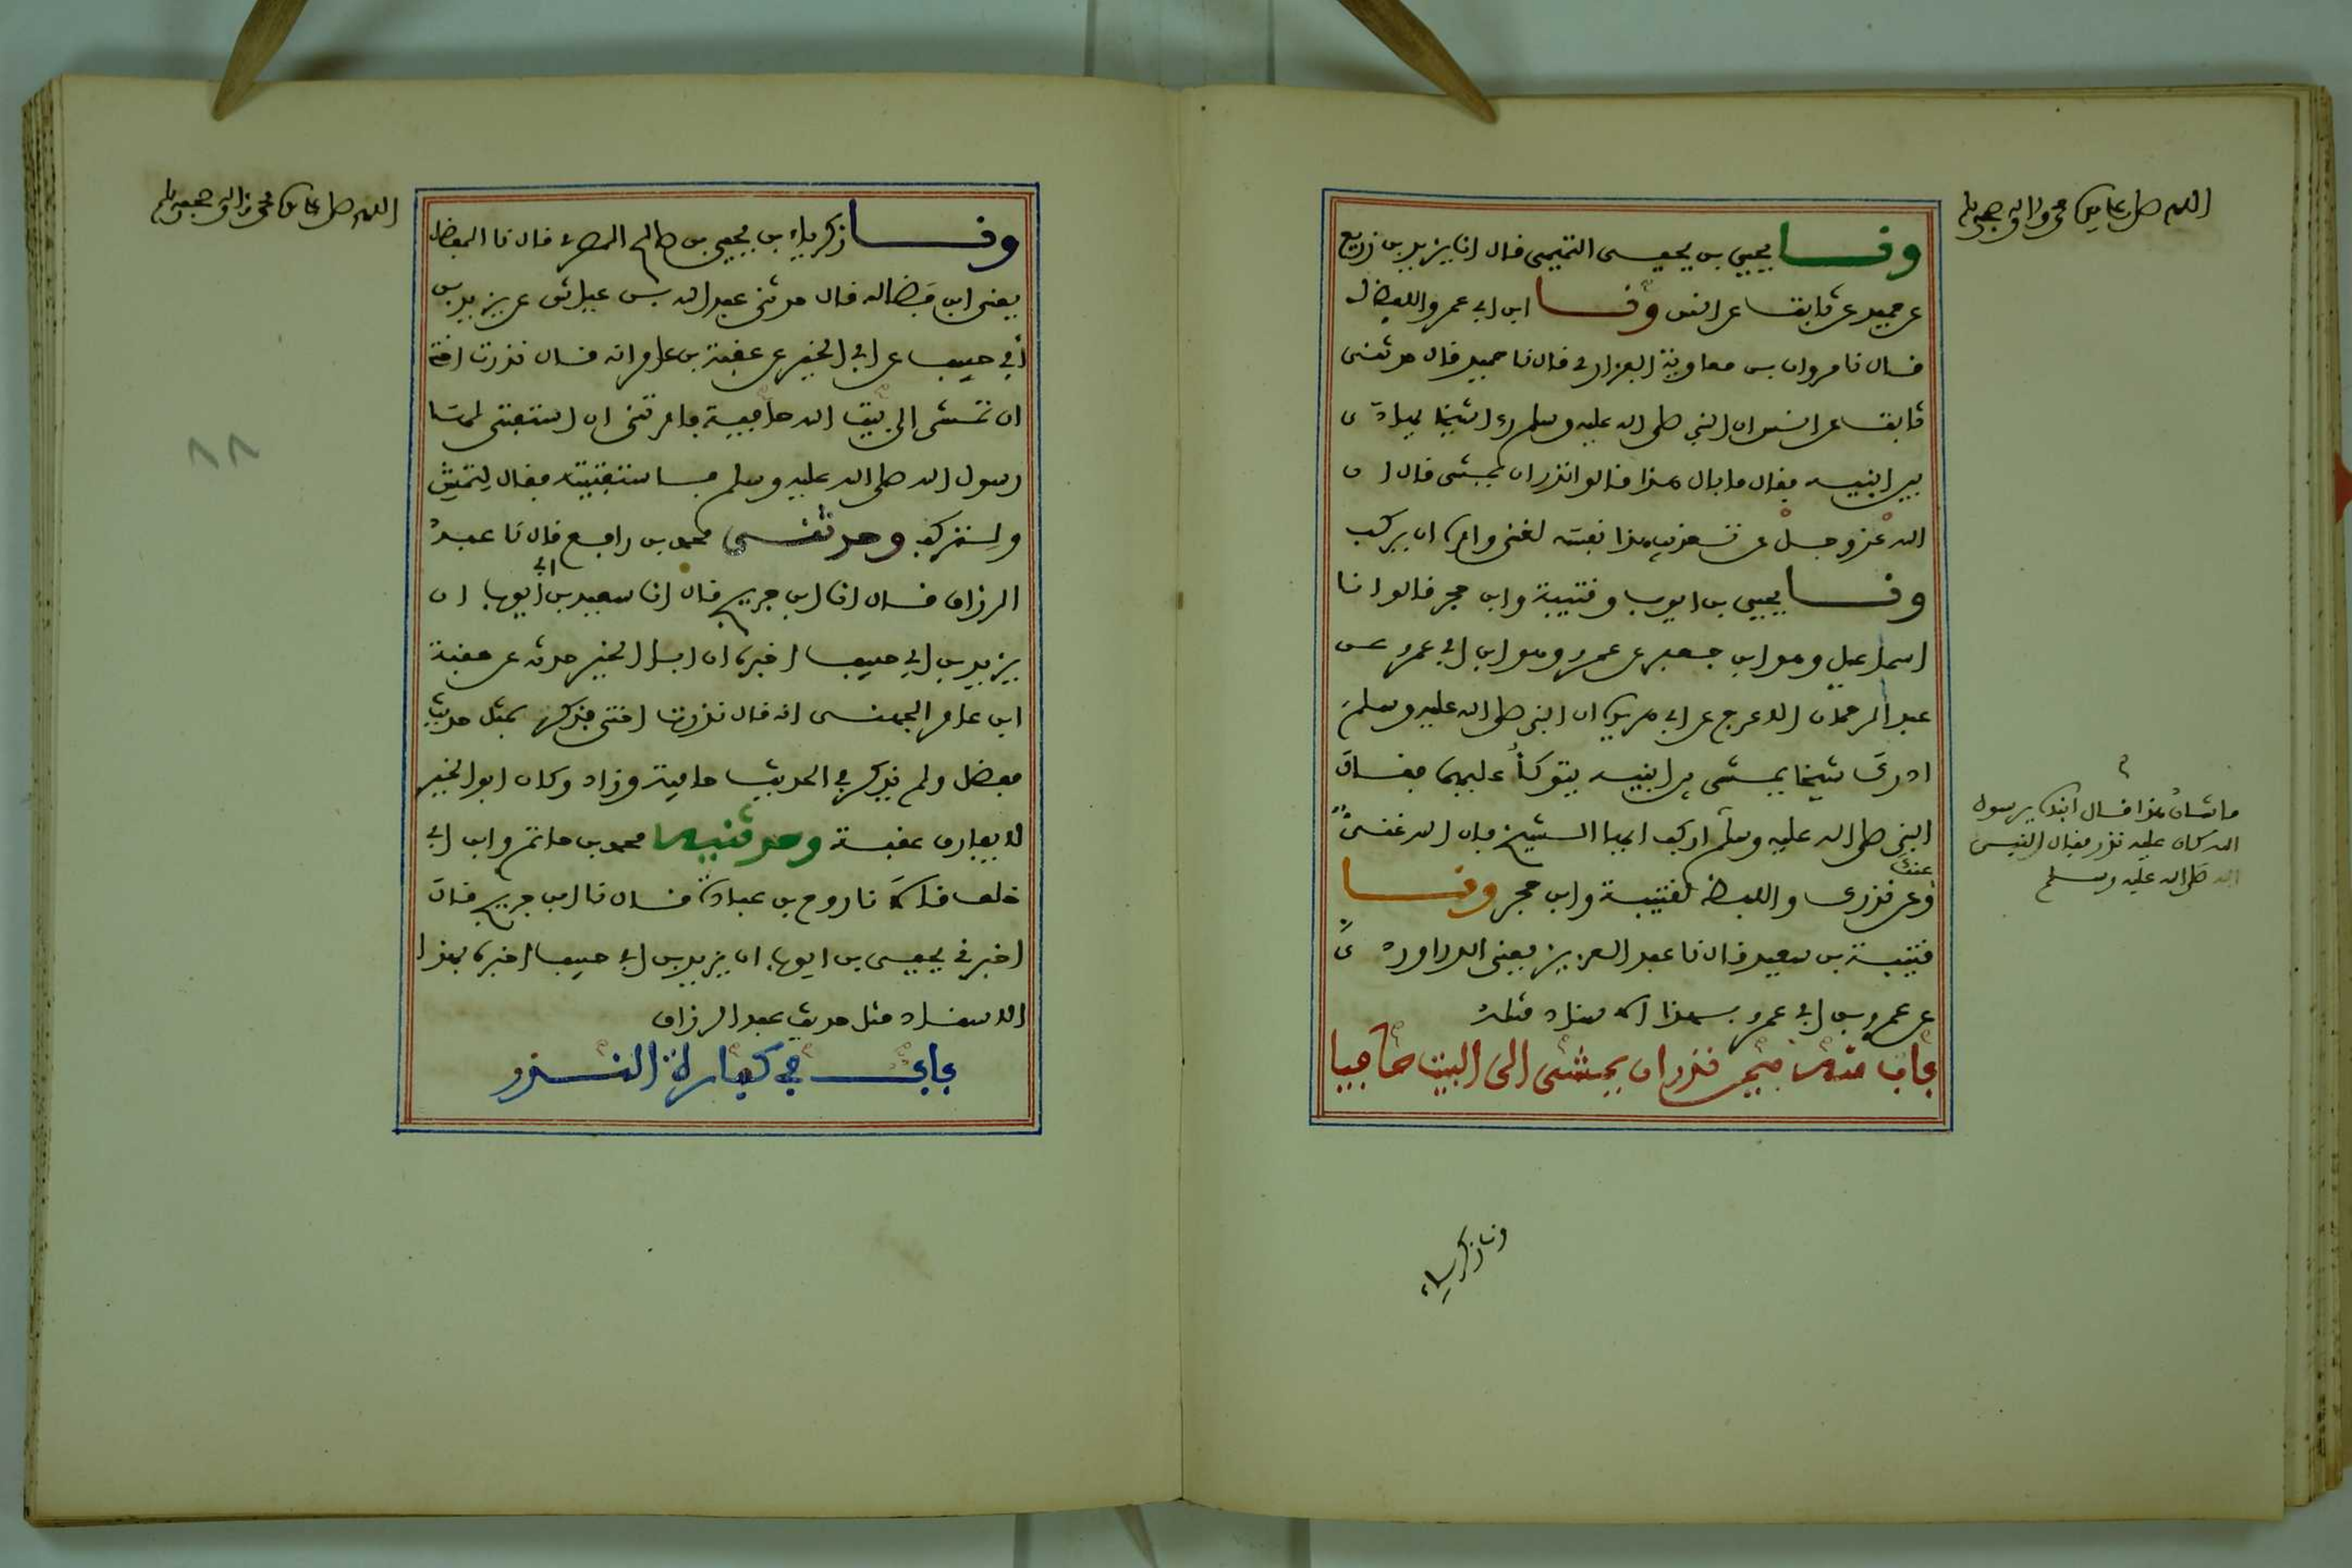 اللهم صل على سيدنا محمد واله وصحبه وسلم
ونا يحيى بن يحيى التميمي قال انا يزيد بن زريع
عن حميد عن ثابت عن انس ونا ابن ابي عمر واللفظ له
قال نا مروان بن معاوية الفزاري قال نا حميد قال حدثني
ثابت عن انس ان النبي صلى الله عليه وسلم رءا شيخا يهادى
بين ابنيه فقال ما بال هذا قالوا نذر ان يمشي قال ان
الله عز وجل عن تعذيب هذا نفسه لغني وامره ان يركب
ونا يحيى بن ايوب وقتيبة وابن حجر قالوا نا
اسماعيل وهو ابن جعفر عن عمرو وهو ابن ابي عمرو عن
عبد الرحمان الاعرج عن ابي هريرة ان النبي صلى الله عليه وسلم
ادرك شيخا يمشي بين ابنيه يتوكأ عليهما فقال
النبي صلى الله عليه وسلم اركب ايها الشيخ فان الله غني
عنك
وعن نذرك واللفظ لقتيبة وابن حجر ونا
قتيبة بن سعيد قال نا عبد العزيز يعني الدراوردي
عن عمرو بن ابي عمرو بهذا الاسناد مثله
باب منه فيمن نذر ان يمشي الى البيت حافيا
ما شان هذا قال ابناه يرسول
الله كان عليه نذر فقال النبي
الله صلى الله عليه وسلم
ونا زكرياء
اللهم صل على سيدنا محمد واله وصحبه وسلم
ونا زكرياء بن يحيى بن صالح المصري قال نا المفضل
يعني ابن فضالة قال حدثني عبد الله بن عياش عن يزيد بن
أبي حبيب عن ابي الخير عن عقبة بن عامر انه قال نذرت اختي
ان تمشي الى بيت الله حافية فامرتني ان استفتي لها
رسول الله صلى الله عليه وسلم فاستفتيته فقال لتمش
ولتركب وحدثني محمد بن رافع قال نا عبد
الرزاق قال انا ابن جريج قال انا سعيد بن ابي ايوب ان
يزيد بن ابي حبيب اخبره ان ابا الخير حدثه عن عقبة
ابن عامر الجهني انه قال نذرت اختي فذكر بمثل حديث
مفضل ولم يذكر في الحديث حافية وزاد وكان ابو الخير
لا يفارق عقبة وحدثنيه محمد بن حاتم وابن ابي
خلف قالا نا روح بن عبادة قال نا ابن جريج قال
اخبرني يحيى بن ايوب ان يزيد بن ابي حبيب اخبره بهذا
الاسناد مثل حديث عبد الرزاق
باب في كفارة النذر
٨٨